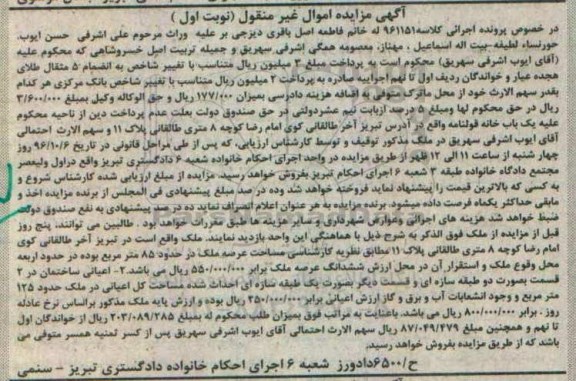 آگهی مزایده اموال غیر منقول (نوبت اول )
در خصوص پرونده اجرائی کلاسه ۹۶۱۱۵۱ له خانم فاطمه اصل باقری دیزجی بر علیه وراث مرحوم علی اشرفی حسن ایوب،
حورنساء لطیفه-بیت اله اسماعیل ، مهناز، معصومه همگی اشرفی سهریق و جمیله تربیت اصل خسروشاهی که محکوم علیه
(آقای ایوب اشرفی سهریق) محکوم است به پرداخت مبلغ ۳ میلیون ریال متناسب با تغییر شاخص به انضمام ۵ مثقال طلای
هجده عیار و خواندگان ردیف اول تا نهم اجراییه صادره به پرداخت ۲ میلیون ریال متناسب با تغییر شاخص بانک مرکزی هر کدام
بقدر سهم الارث خود از محل ماترک متوفی به اضافه هزینه دادرسی بمیزان ۱۷۷/۰۰۰ ریال و حق الوکاله وکیل بمبلغ ۳/۶۰۰/۰۰۰
ریال در حق محکوم لها ومبلغ ۵ درصد ازبابت نیم عشردولتی در حق صندوق دولت بعلت عدم پرداخت دین از ناحیه محکوم
علیه یک باب خانه قولنامه واقع در آدرس تبریز آخر طالقانی کوی امام رضا کوچه ۸ متری طالقانی پلاک ۱۱ و سهم الارث احتمالی
آقای ایوب اشرفی سهریق در ملک مذکور توقیف و توسط کارشناس ارزیابی، که پس از طی مراحل قانونی در تاریخ ۹۶/۱۰/۶ روز
چهار شنبه از ساعت ۱۱ الی ۱۲ ظهر از طریق مزایده در واحد اجرای احکام خانواده شعبه ۶ دادگستری تبریز واقع دراول ولیعصر
مجتمع دادگاه خانواده طبقه ۳ شعبه ۶ اجرای احکام تبریز بفروش خواهد رسید. مزایده از مبلغ ارزیابی شده کارشناس شروع و
به کسی که بالاترین قیمت را پیشنهاد نماید فروخته خواهد شد وده در صد مبلغ پیشنهادی فی المجلس از برنده مزایده اخذ و
مابقی حداکثر یکماه فرصت داده میشود. برنده مزایده به هر عنوان اعلام انصراف نماید ده در صد پیشنهادی به نفع صندوق دولت
ضبط خواهد شد هزینه های اجرائی وعوارض شهرداری و سایر هزینه ها طبق مقررات خواهد بود . طالبین می توانند، پنج روز
قبل از مزایده از ملک فوق الذکر به شرح ذیل با هماهنگی این واحد بازدید نمایند. ملک واقع است در تبریز آخر طالقانی کوی
امام رضا کوچه ۸ متری طالقانی پلاک ۱۱ مطابق نظریه کارشناسی مساحت عرصه ملک در حدود ۸۵ متر مربع بوده در حدود اربعه
محل وقوع ملک و استقرار آن در محل ارزش ششدانگ عرصه ملک برابر ۵۵۰/۰۰۰/۰۰۰ ریال می باشد.۲- اعیانی ساختمان در ۲
قسمت بصورت دو طبقه سازه ای و قسمت دیگر بصورت یک طبقه سازه ای احداث شده مساحت کل اعیانی در ملک حدود ۱۲۵
متر مربع و وجود انشعابات آب و برق و گاز ارزش اعیانی برابر ۲۵۰/۰۰۰/۰۰۰ ریال بوده و ارزش پایه ملک مذکور براساس نرخ عادله
روز . برابر ۸۰۰/۰۰۰/۰۰۰ ریال می باشد. باعنایت به مراتب فوق بمیزان طلب محکوم له بمبلغ ۲۰۳/۰۸۹/۲۸۵ ریال از خواندگان اول
تا نهم و همچنین مبلغ ۸۷/۰۴۹/۴۷۹ ریال سهم الارث احتمالی آقای ایوب اشرفی سهریق پس از کسر ثمنیه همسر متوفی می
باشد که از طریق مزایده بفروش خواهد رسید.
ح/۶۵۰۰دادورز شعبه ۶ اجرای احکام خانواده دادگستری تبریز - سنمی